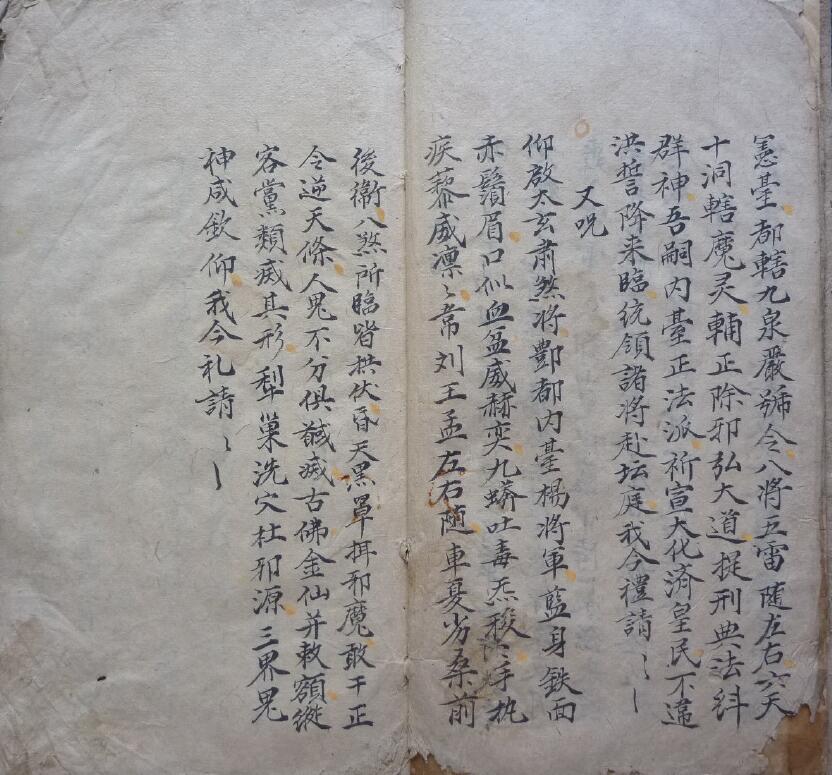 憲臺都轄九泉嚴號令八將五雷随左右六天
十洞轄魔灵輔正除邪弘大道提刑典法糾
群神吾嗣内臺正法派祈宣大化済皇民不違
洪誓降来臨統領諸將赴坛庭我今禮請〻〻
又咒
仰啟太玄肅煞将酆都内臺楊将軍藍身鉄面
赤鬚眉口似血盆威赫奕九蟒吐毒炁稜〻手执
疾藜威凛〻常刘王孟左右随車夏劣桑前
後衛八煞所臨皆拱伏昏天黑罩捉邪魔敢干正
令逆天條人鬼不分俱馘滅古佛金仙并敕額縱
容黨類滅其形犁巢洗穴杜邪源三界鬼
神咸欽仰我今礼請〻〻